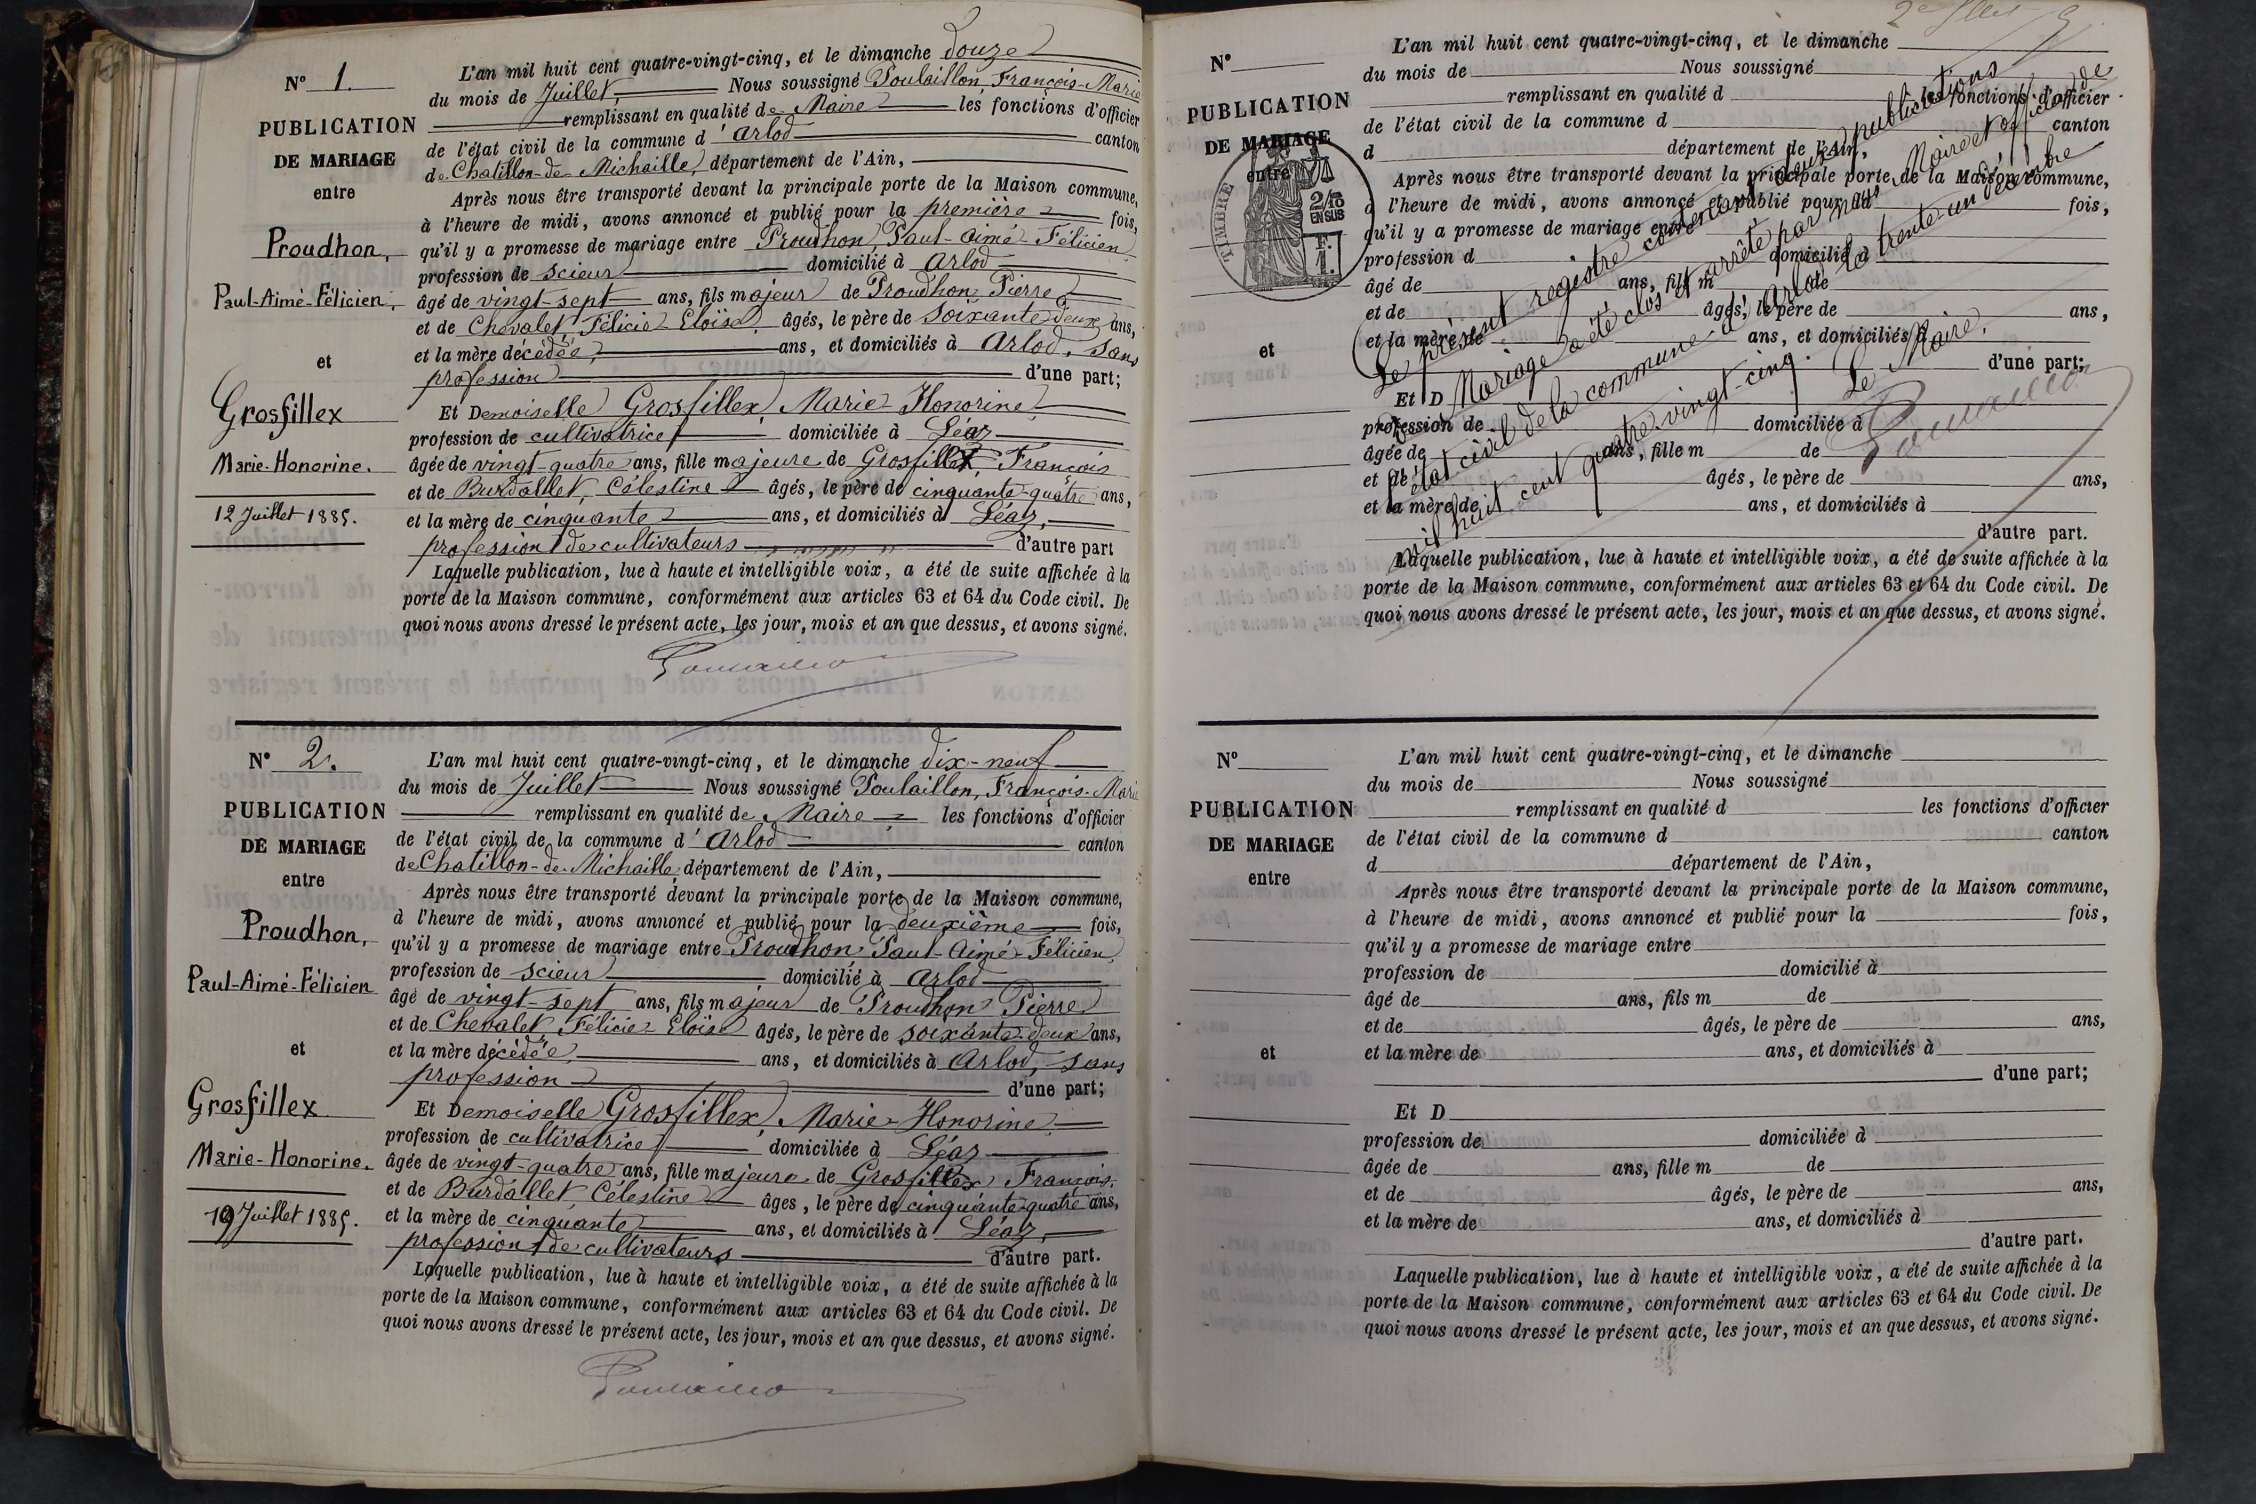 N° 1.
PUBLICATION
DE MARIAGE
entre
Proudhon,
Paul-Aimé-Félicien,
et
Grosfillex
Marie-Honorine.
12 Juillet 1885.
L'an mil huit cent quatre-vingt-cinq, et le dimanche douze
du mois de Juillet, Nous soussigné Poulaillon, François-Marie
remplissant en qualité de Maire les fonctions d'officier
de l'état civil de la commune d'Arlod canton
de Chatillon-de-Michaille, département de l'Ain,
Après nous être transporté devant la principale porte de la Maison commune,
à l'heure de midi, avons annoncé et publié pour la première fois,
qu'il y a promesse de mariage entre Proudhon, Paul-Aimé-Félicien,
profession de scieur domicilié à Arlod
âgé de vingt-sept ans, fils majeur de Proudhon Pierre
et de Chevalet, Félicie Eloïse âgés, le père de soixante-deux ans,
et la mère décédée, ans, et domiciliés à Arlod, sans
profession d'une part;
Et Demoiselle Grosfillex, Marie-Honorine,
profession de cultivatrice domiciliée à Léaz
âgée de vingt-quatre ans, fille majeure de Grosfillex, François
et de Burdallet, Célestine âgés, le père de cinquante-quatre ans,
et la mère de cinquante ans, et domiciliés à Léaz,
profession de cultivateurs d'autre part
Laquelle publication, lue à haute et intelligible voix, a été de suite affichée à la
porte de la Maison commune, conformément aux articles 63 et 64 du Code civil. De
quoi nous avons dressé le présent acte, les jour, mois et an que dessus, et avons signé.
N° 2.
PUBLICATION
DE MARIAGE
entre
Proudhon,
Paul-Aimé-Félicien
et
Grosfillex
Marie-Honorine.
19 Juillet 1885.
L'an mil huit cent quatre-vingt-cinq, et le dimanche dix-neuf
du mois de Juillet Nous soussigné Poulaillon, François-Marie
remplissant en qualité de Maire les fonctions d'officier
de l'état civil de la commune d'Arlod canton
de Chatillon-de-Michaille, département de l'Ain,
Après nous être transporté devant la principale porte de la Maison commune,
à l'heure de midi, avons annoncé et publié pour la deuxième fois,
qu'il y a promesse de mariage entre Proudhon Paul-Aimé-Félicien,
profession de scieur domicilié à Arlod
âgé de vingt-sept ans, fils majeur de Proudhon Pierre
et de Chevalet, Félicie Eloïse âgés, le père de soixante-deux ans,
et la mère décédée, ans, et domiciliés à Arlod, sans
profession d'une part;
Et Demoiselle Grosfillex, Marie-Honorine,
profession de cultivatrice domiciliée à Léaz
âgée de vingt-quatre ans, fille majeure de Grosfillex François,
et de Burdallet Célestine âgés, le père de cinquante-quatre ans,
et la mère de cinquante ans, et domiciliés à Léaz,
profession de cultivateurs d'autre part.
Laquelle publication, lue à haute et intelligible voix, a été de suite affichée à la
porte de la Maison commune, conformément aux articles 63 et 64 du Code civil. De
quoi nous avons dressé le présent acte, les jour, mois et an que dessus, et avons signé.
N°
PUBLICATION
DE MARIAGE
entre
et
TIMBRE
2/10
EN SUS
F.
1.
L'an mil huit cent quatre-vingt-cinq, et le dimanche
du mois de Nous soussigné
remplissant en qualité d les fonctions d'officier
de l'état civil de la commune d canton
d département de l'Ain,
Après nous être transporté devant la principale porte de la Maison commune,
à l'heure de midi, avons annoncé et publié pour la fois,
qu'il y a promesse de mariage entre
profession d domicilié à
âgé de ans, fils m de
et de âgés, le père de ans,
et la mère de ans, et domiciliés à
d'une part;
Et D
profession de domiciliée à
âgée de ans, fille m de
et de âgés, le père de ans,
et la mère de ans, et domiciliés à
d'autre part.
Laquelle publication, lue à haute et intelligible voix, a été de suite affichée à la
porte de la Maison commune, conformément aux articles 63 et 64 du Code civil. De
quoi nous avons dressé le présent acte, les jour, mois et an que dessus, et avons signé.
Le présent registre contenant deux publications
de Mariage a été clos et arrêté par nous Maire et officier de
l'état civil de la commune d'Arlod le trente-un décembre
mil huit cent quatre-vingt-cinq.
Le Maire,
N°
PUBLICATION
DE MARIAGE
entre
et
L'an mil huit cent quatre-vingt-cinq, et le dimanche
du mois de Nous soussigné
remplissant en qualité d les fonctions d'officier
de l'état civil de la commune d canton
d département de l'Ain,
Après nous être transporté devant la principale porte de la Maison commune,
à l'heure de midi, avons annoncé et publié pour la fois,
qu'il y a promesse de mariage entre
profession de domicilié à
âgé de ans, fils m de
et de âgés, le père de ans,
et la mère de ans, et domiciliés à
d'une part;
Et D
profession de domiciliée à
âgée de ans, fille m de
et de âgés, le père de ans,
et la mère de ans, et domiciliés à
d'autre part.
Laquelle publication, lue à haute et intelligible voix, a été de suite affichée à la
porte de la Maison commune, conformément aux articles 63 et 64 du Code civil. De
quoi nous avons dressé le présent acte, les jour, mois et an que dessus, et avons signé.